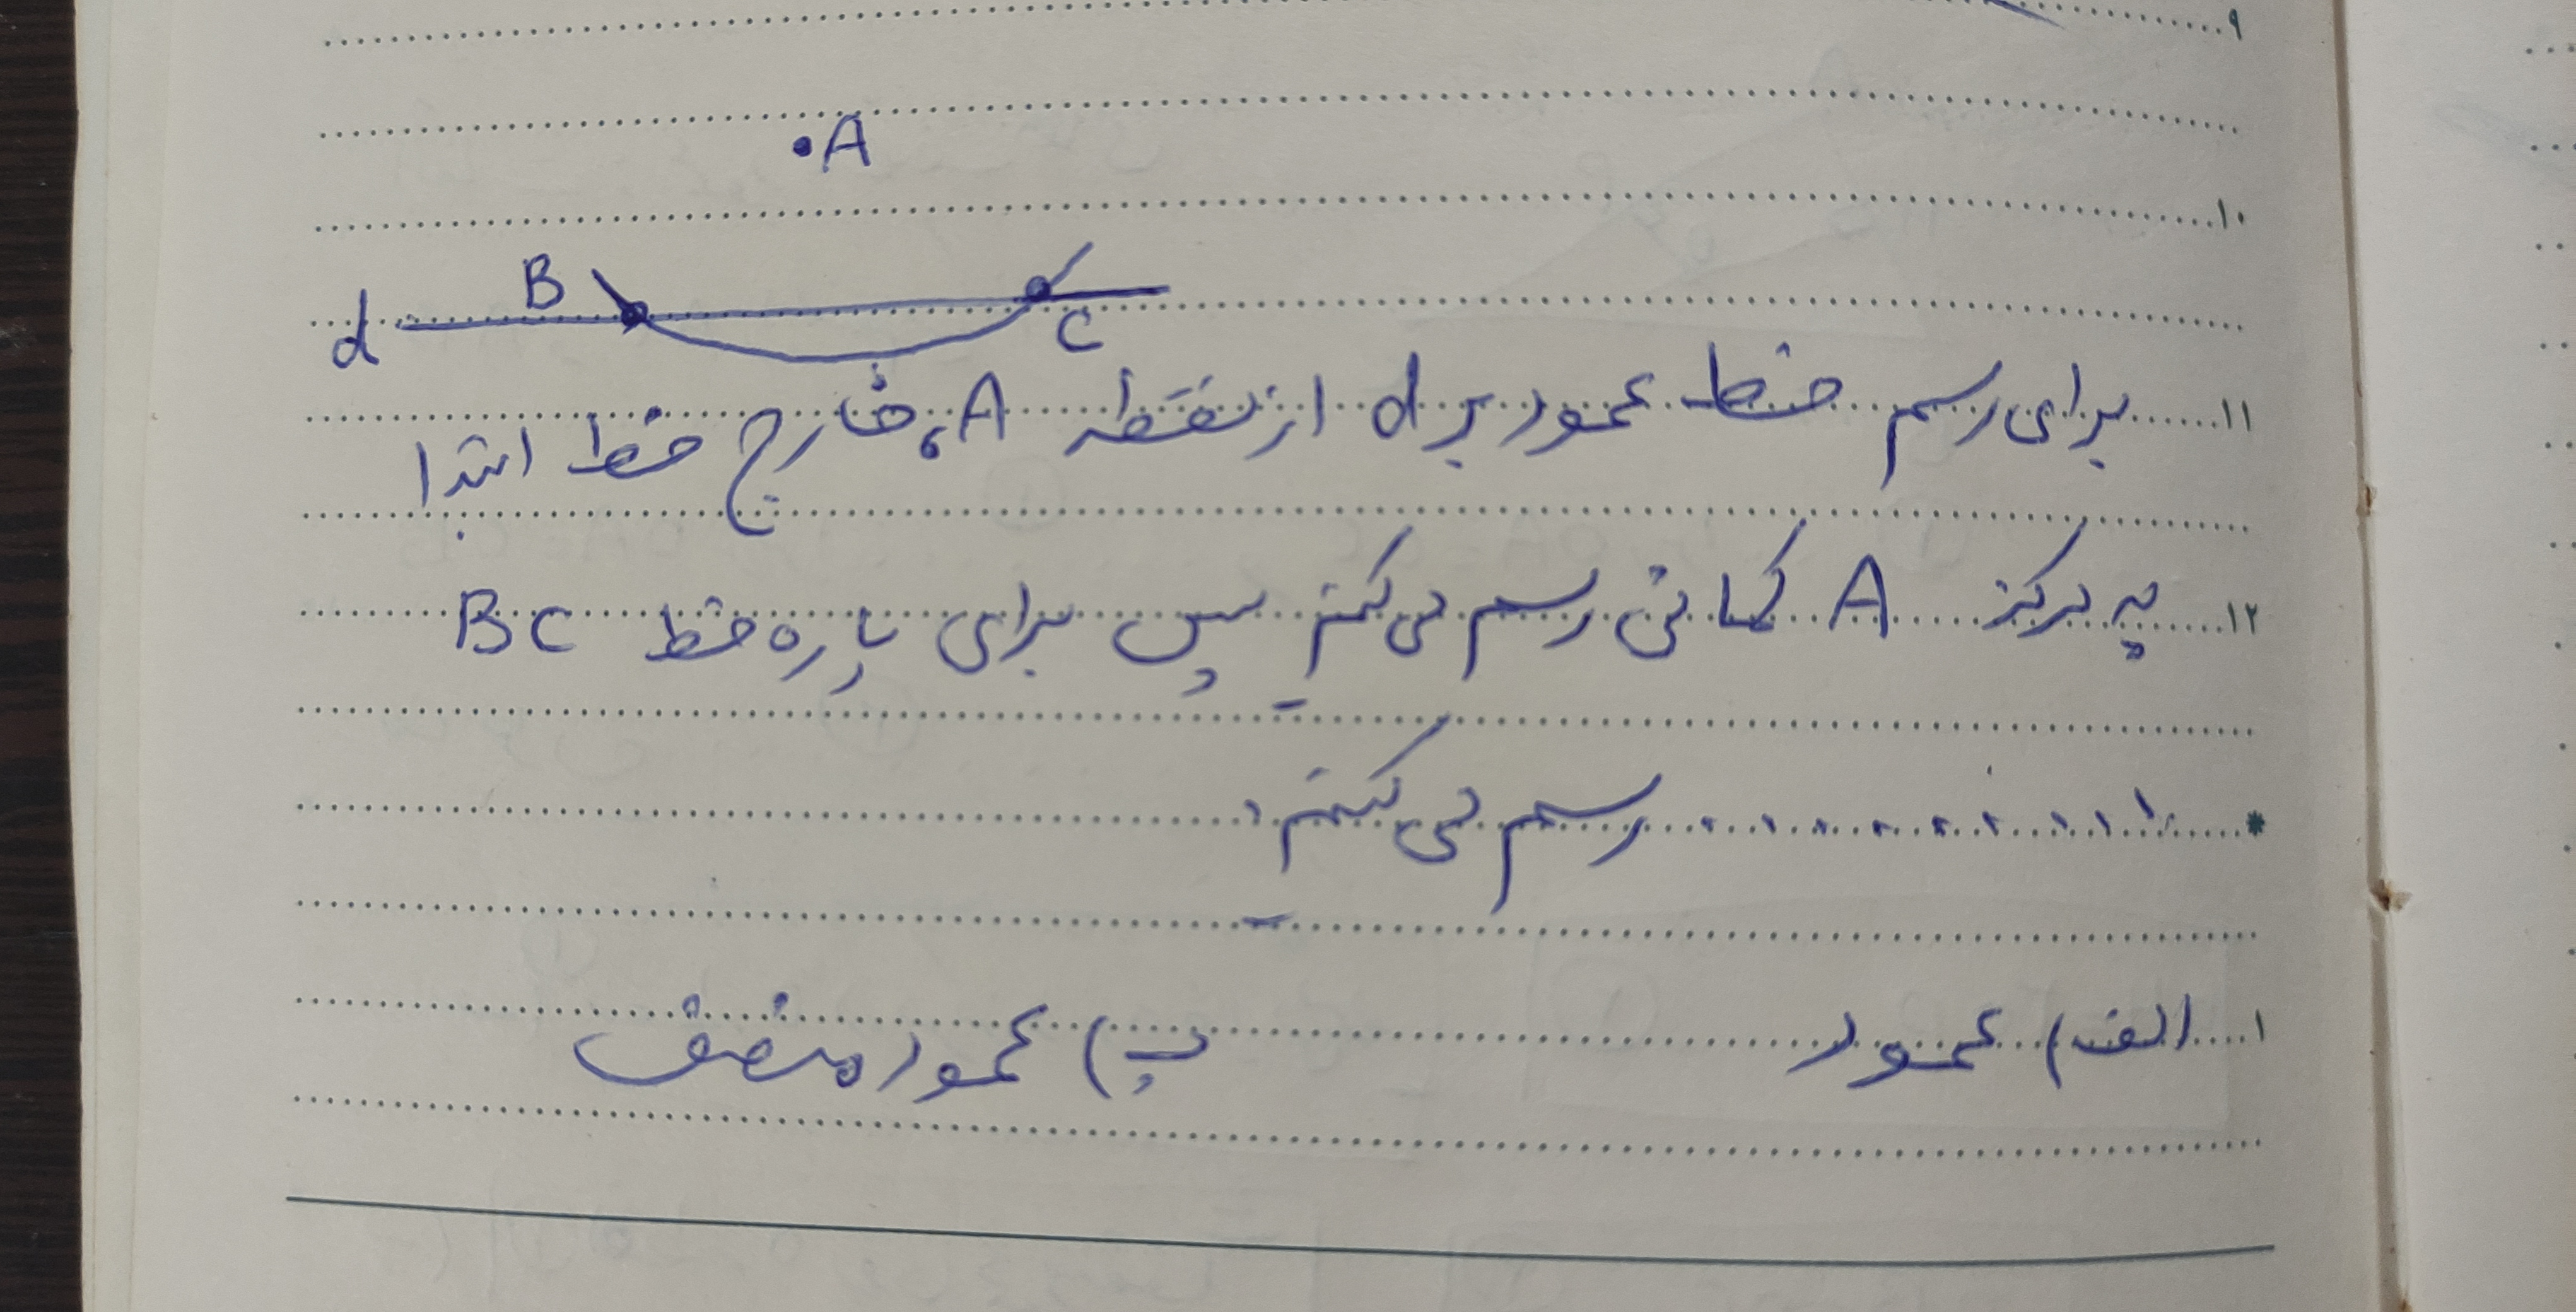 ۹
.A
۱۰
B
d
C
۱۱ برای رسم خط عمود بر d از نقطه A، خارج خط ابتدا
۱۲ به مرکز A کمانی رسم می‌کنیم سپس برای پاره خط BC
* .......... رسم می‌کنیم.
۱ الف) عمود ب) عمود منصف